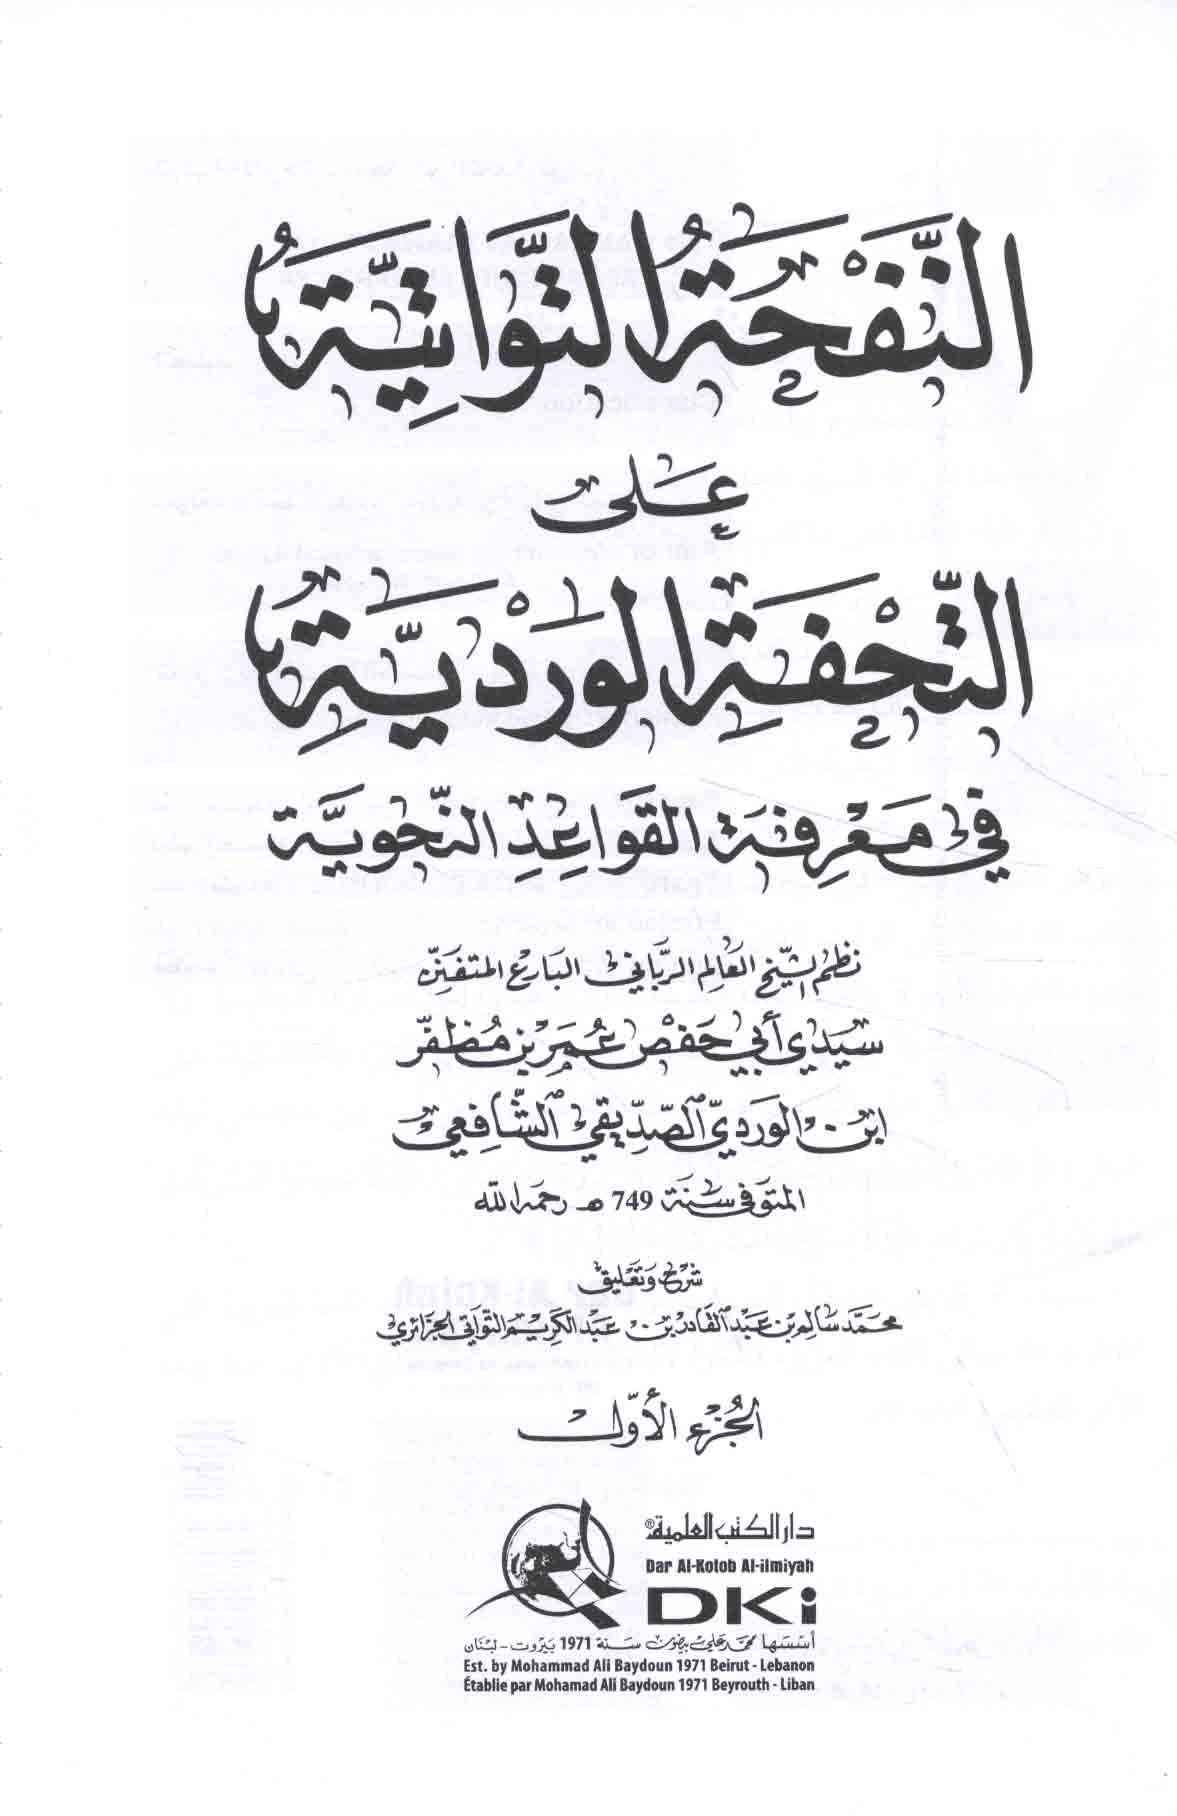 النَّفْحَةُ التَّوَاتِيَّةُ
عَلَى
التُّحْفَةِ الوَرْدِيَّةِ
في مَعْرِفَةِ القَوَاعِدِ النَّحْوِيَّة
نظم الشيخ العالم الرباني البارع المتفنن
سيدي أبي حفص عمر بن مظفر
ابن الوردي الصديقي الشافعي
المتوفى سنة 749 هـ رحمه الله
شرح وتعليق
محمد سالم بن عبد القادر بن عبد الكريم التواتي الجزائري
الجزء الأول
دار الكتب العلمية®
Dar Al-Kotob Al-ilmiyah
DKi
أسسها محمد علي بيضون سنة 1971 بيروت - لبنان
Est. by Mohammad Ali Baydoun 1971 Beirut - Lebanon
Établie par Mohamad Ali Baydoun 1971 Beyrouth - Liban